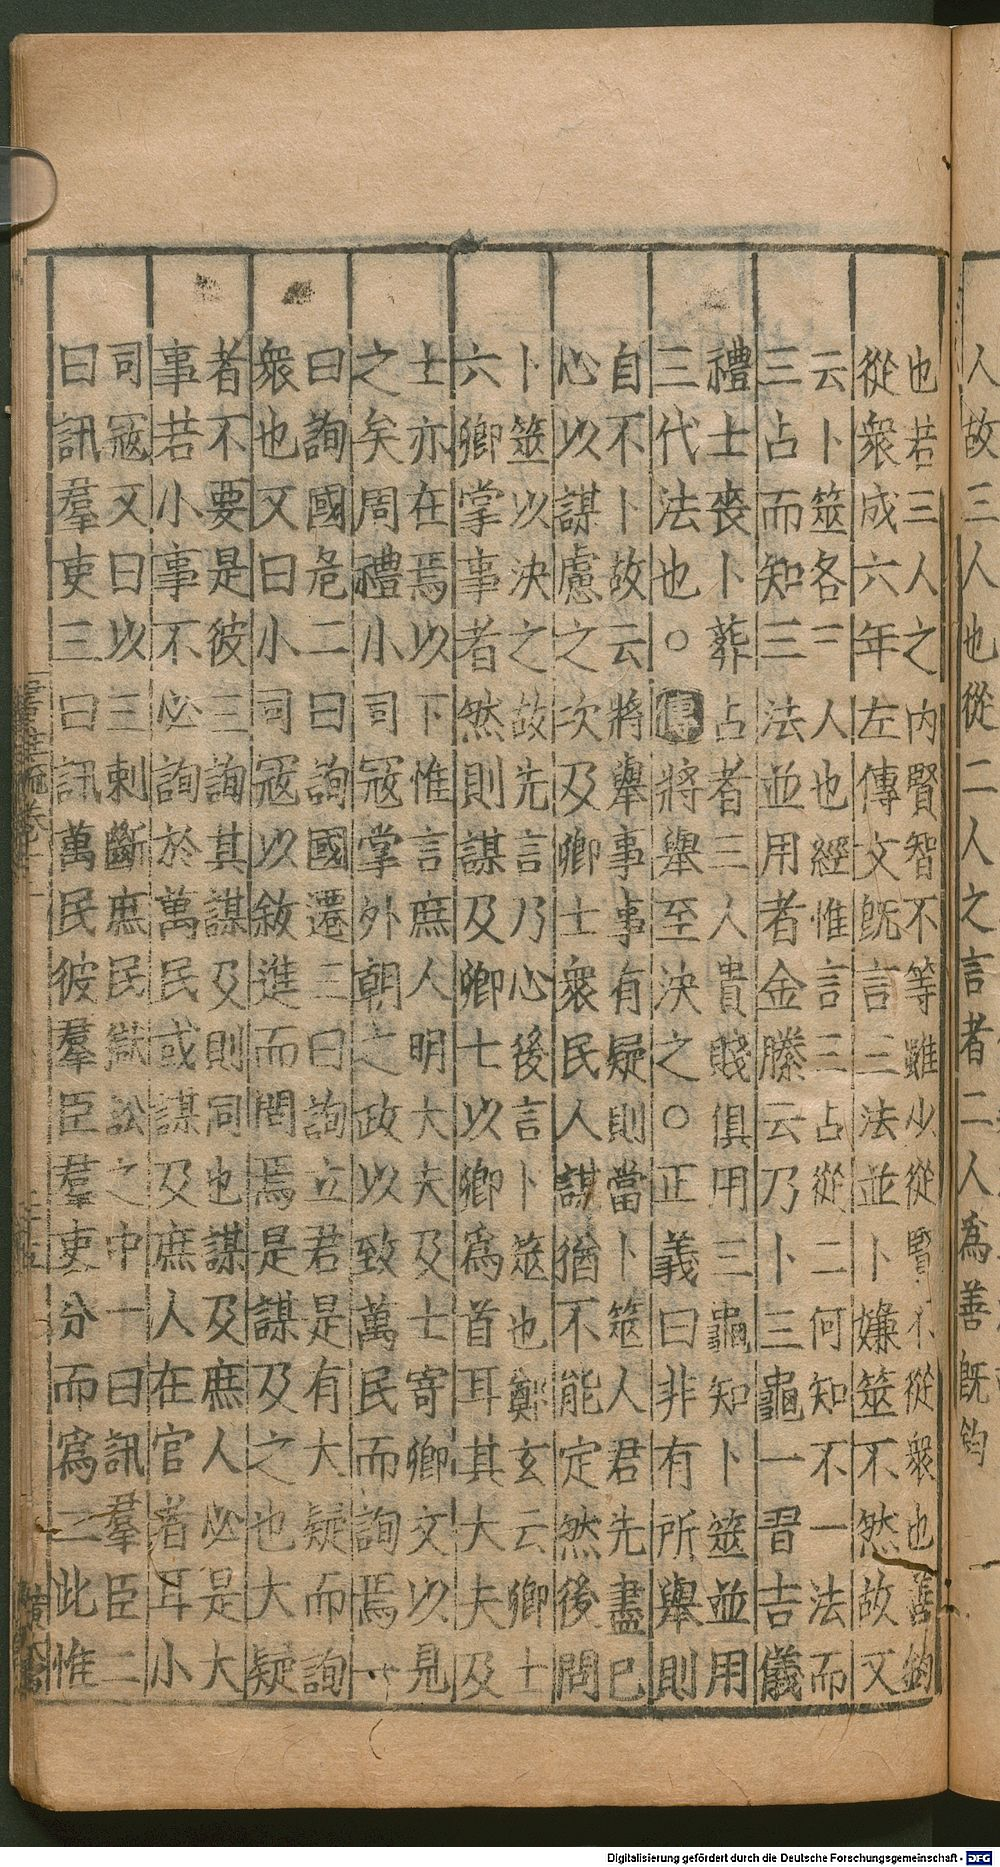 人故三人也從二人之言者二人爲善既鈞
也若三人之内賢智不等雖少從賢不從衆也善鈞
從衆成六年左傳文既言三法並卜嫌筮不然故又
云卜筮各三人也經惟言三占從二何知不一法而
三占而知三法並用者金縢云乃卜三龜一習吉儀
禮士喪卜葬占者三人貴賤俱用三龜知卜筮並用
三代法也○傳將舉至決之○正義曰非有所舉則
自不卜故云將舉事事有疑則當卜筮人君先盡己
心以謀慮之次及卿士衆民人謀猶不能定然後問
卜筮以決之故先言乃心後言卜筮也鄭玄云卿士
六卿掌事者然則謀及卿七以卿爲首耳其大夫及
士亦在焉以下惟言庶人明大夫及士寄卿文以見
之矣周禮小司寇掌外朝之政以致萬民而詢焉一
曰詢國危二曰詢國遷三曰詢立君是有大疑而詢
衆也又曰小司寇以敘進而問焉是謀及之也大疑
者不要是彼三詢其謀及則同也謀及庶人必是大
事若小事不必詢於萬民或謀及庶人在官者耳小
司寇又曰以三刺斷庶民獄訟之中一曰訊羣臣二
曰訊羣吏三曰訊萬民彼羣臣羣吏分而爲二此惟
Digitalisierung gefördert durch die Deutsche Forschungsgemeinschaft - DFG